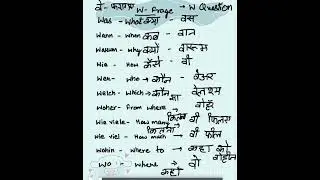 वे - फ्राग्स W-Frage → W Question
Was - What क्या - वस
Wann - When कब - वान
Warum - why क्यों - वारूम
Wie - How कैसे - वी
Wer - who - कौन - वेअर
Welch - Which → कौन सा - वेल्श
Woher - From where - वोहेर
Wie viele - How many कितने - वी फिलअ
Wie viel - How much कितना - वी फील
Wohin - where to → कहाँ को - वोहीन
Wo - where → कहाँ - वो